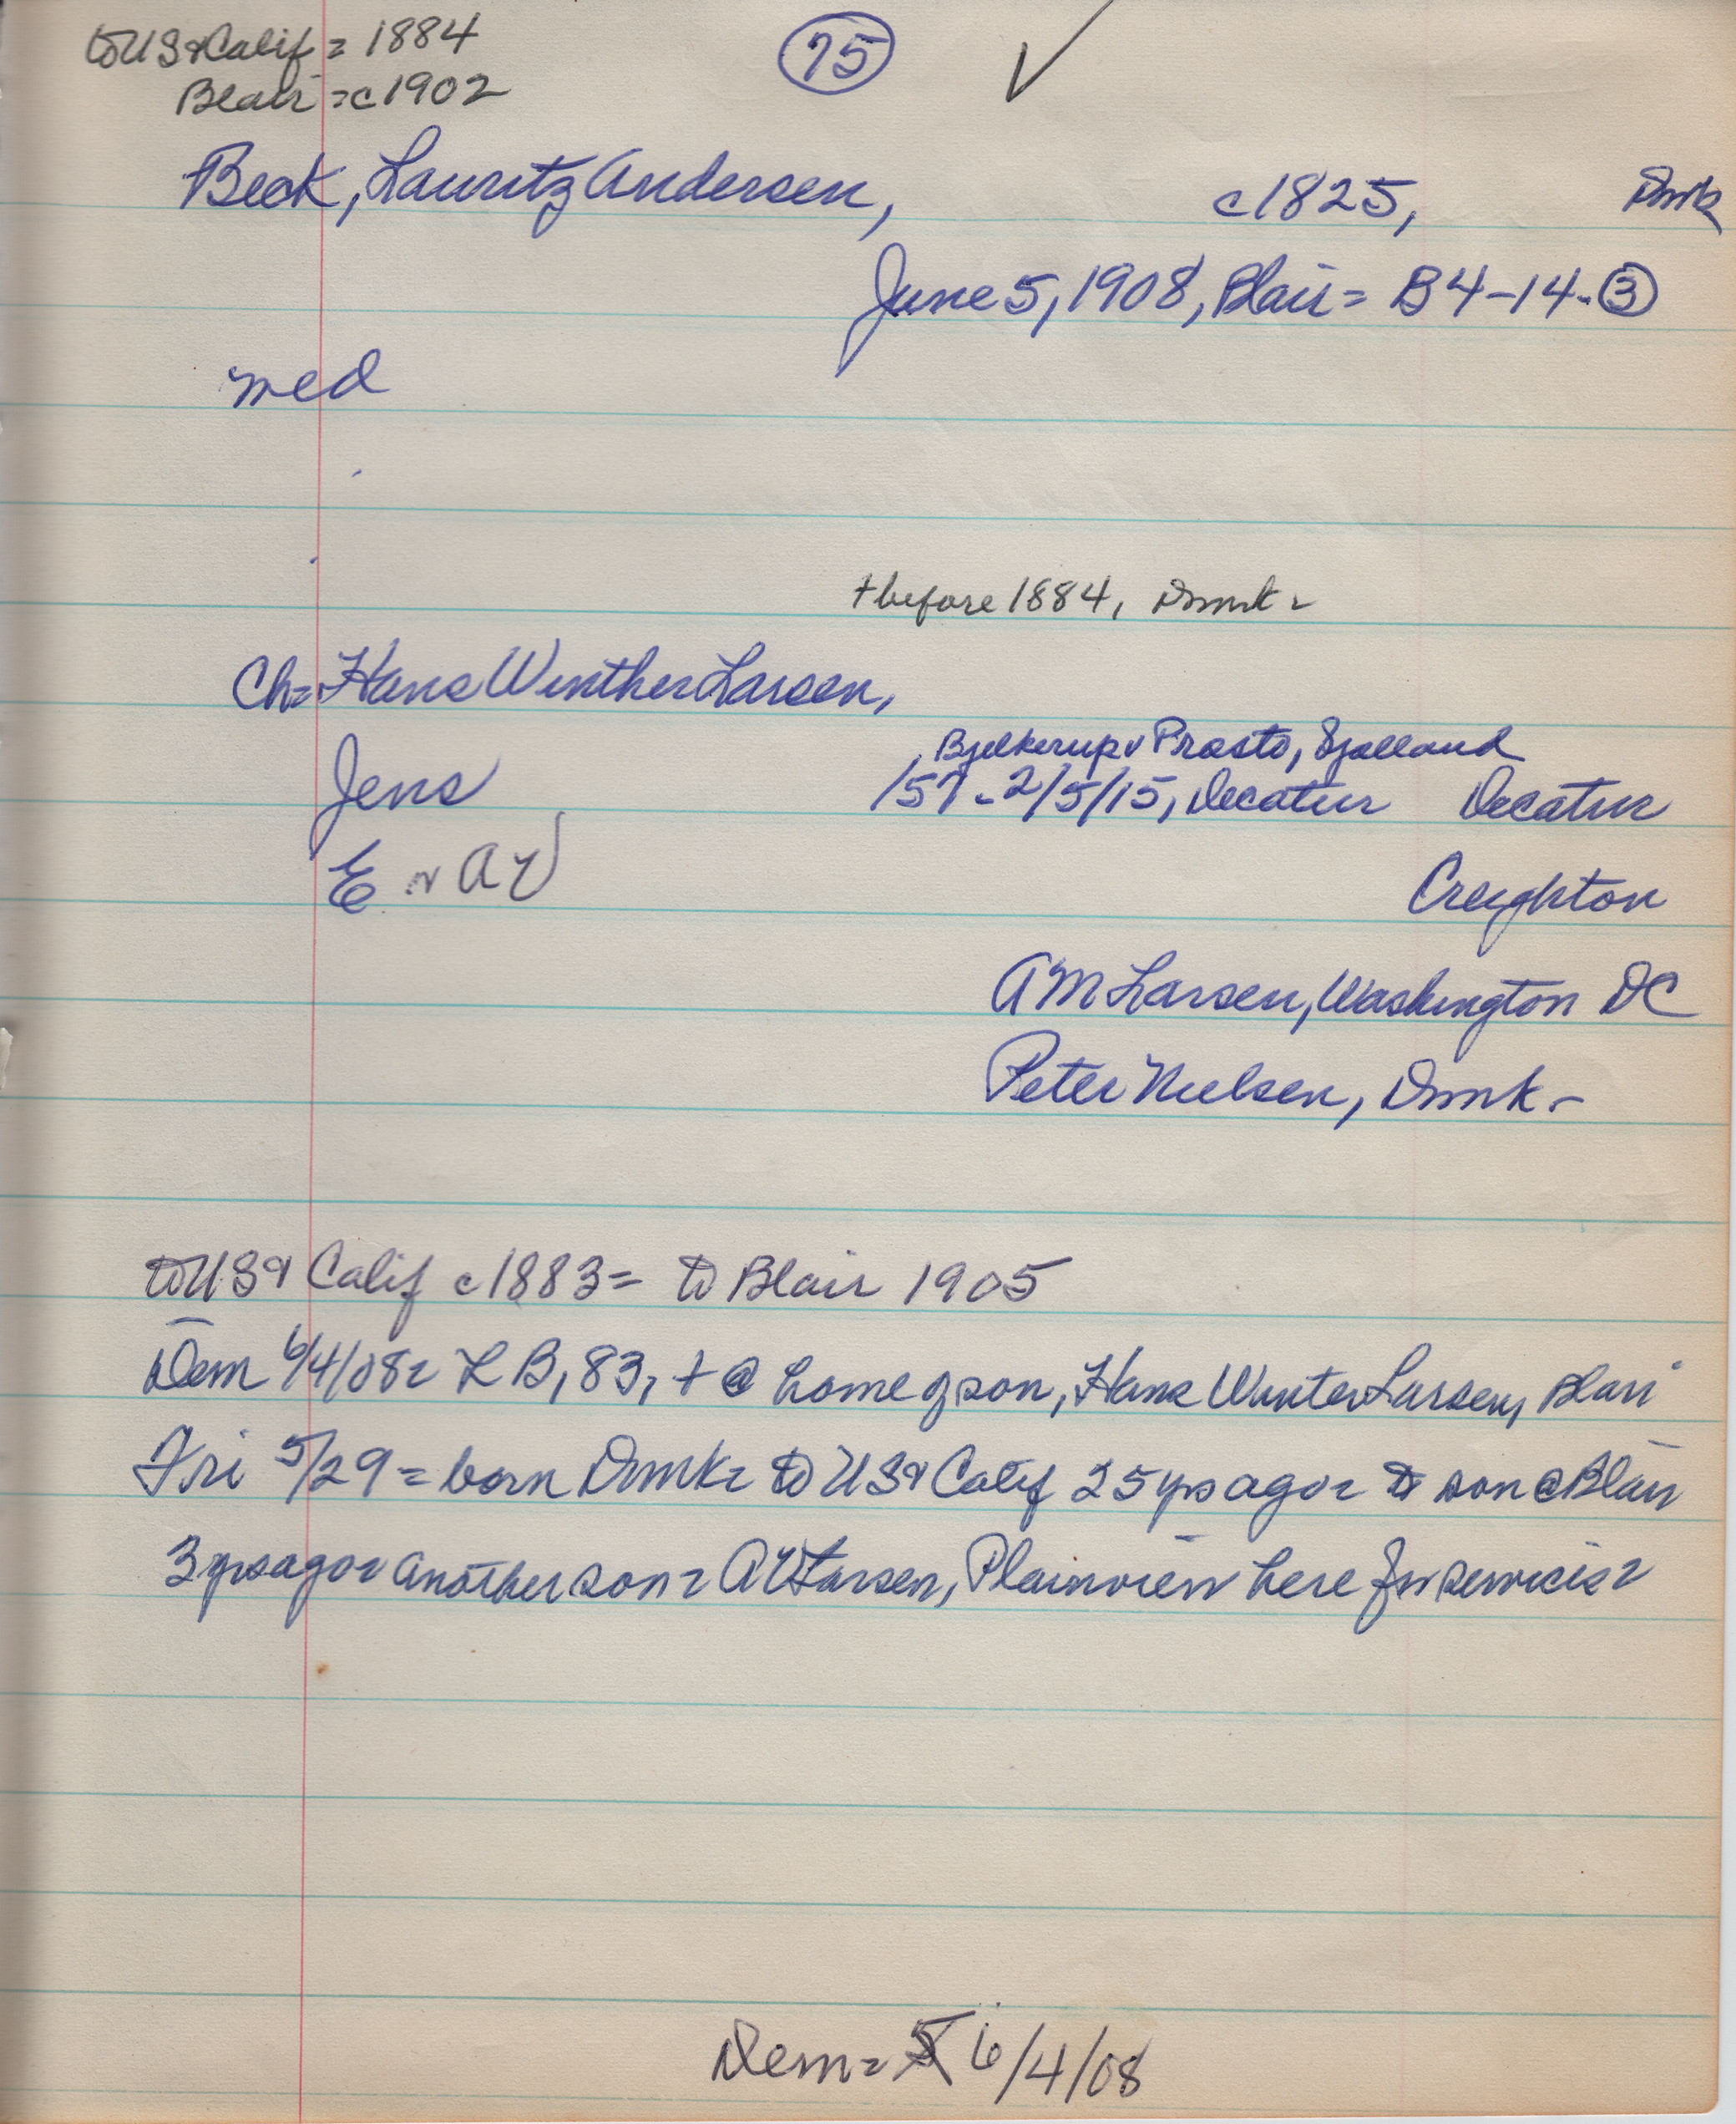 to US & Calif = 1884
Blair = c1902
75 ✓
Beck, Lauritz Andersen, c1825, Dmk
June 5, 1908, Blair = B4-14-③
med
+ before 1884, Dmk =
Ch = Hans Winther Larsen,
Bjelkerup v Prasto, Sjalland
Jens /57 - 2/5/15, Decatur Decatur
E or AV Creighton
AM Larsen, Washington DC
Peter Nielsen, Dmk -
to US & Calif c1883 = to Blair 1905
Dem 6/4/08 = L B, 83, + @ home of son, Hans Winter Larsen, Blair
Fri 5/29 = born Dmk = to US & Calif 25 yrs ago = to son @ Blair
3 yrs ago = another son = AV Larsen, Plainview here for services =
Dem = 5 6/4/08